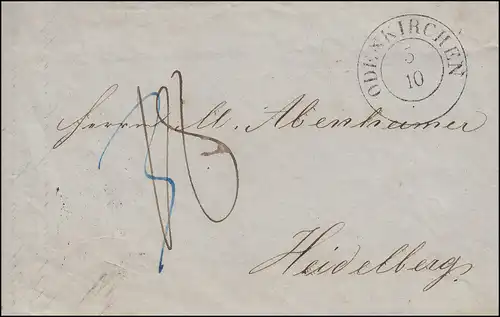 ODENKIRCHEN
5
10
Herrn M. Abenheimer
Heidelberg